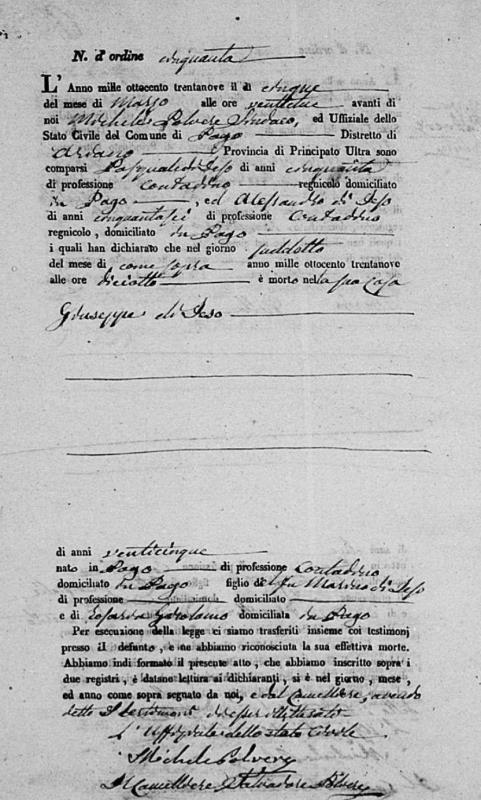 N. d'ordine cinquanta
L' Anno mille ottocento trentanove il di cinque
del mese di Marzo alle ore ventitue avanti di
noi Michele Polvere Sindaco, ed Uffiziale dello
Stato Civile del Comune di Pago Distretto di
Ariano Provincia di Principato Ultra sono
comparsi Pasquale di Ieso di anni cinquanta
di professione Contadino regnicolo domiciliato
in Pago, ed Alessandro di Ieso
di anni cinquantasei di professione Contadino
regnicolo, domiciliato in Pago
i quali han dichiarato che nel giorno suddetto
del mese di come sopra anno mille ottocento trentanove
alle ore diciotto è morto nella sua casa
Giuseppe di Ieso
di anni venticinque
nato in Pago di professione Contadino
domiciliato in Pago figlio del fu Marino di Ieso
di professione domiciliato
e di Girolamo domiciliata in Pago
Per esecuzione della legge ci siamo trasferiti insieme coi testimonj
presso il defunto, e ne abbiamo riconosciuta la sua effettiva morte.
Abbiamo indi formato il presente atto, che abbiamo inscritto sopra i
due registri, e datane lettura ai dichiaranti, si è nel giorno, mese,
ed anno come sopra segnato da noi, e dal Cancelliere, avendo
detto I testimoni di esser illetterato
L'Uffiziale dello stato Civile
Michele Polvere
Il Cancelliere Salvadore Polvere